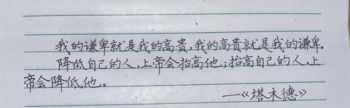 我的谦卑就是我的高贵,我的高贵就是我的谦卑.
降低自己的人,上帝会抬高他;抬高自己的人,上
帝会降低他。
——《塔木德》